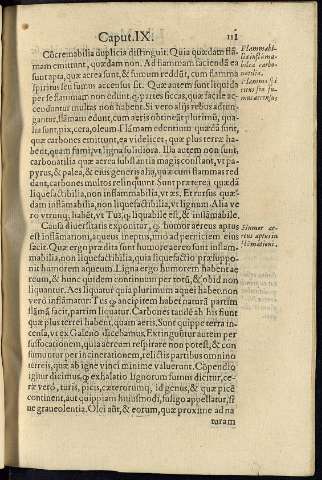 Caput. IX. 111
Cõcremabilia duplicia distinguit. Quia quædam flã-
mam emittunt, quædam non. Ad flammam faciendã ea
sunt apta, quæ aerea sunt, & fumum reddũt, cum flamma
spiritus seu fumus accensus sit. Quæ autem sunt liquida
per se flammam non edunt, quæ facile ac-
cendantur multas non habent. Si vero alijs rebus adiun-
gantur, flãmam edunt, cum aeris obtineãt plurimũ, qua-
lia sunt, pix, cera, oleum. Flãmam edentium quædã sunt,
quæ carbones emittunt, ea videlicet, quæ plus terræ ha-
bent, quam fumi, vt ligna solidiora. Illa autem non sunt
carbonabilia quæ aerea substantia magis constant, vt pa-
pyrus, & palea, & eius generis alia, quæ cum flammas red
dant, carbones multos relinquunt. Sunt præterea quædã
liquefactibilia, non inflammabilia, vt æs. Et rursus quæ-
dam inflãmabilia, non liquefactibilia, vt lignum. Alia ve
ro vtrunq; habẽt, vt Tus, quod liquabile est, & inflãmabile.
Causã diuersitatis exponitur, quod humor aereus aptus
est inflãmationi, aqueus ineptus, imò ad perniciem eius
facit. Quæ ergo prædita sunt humore aereo sunt inflam-
mabilia, non liquefactibilia, quia liquefactio præsuppo-
nit humorem aqueum. Ligna ergo humorem habent ae
reum, & hunc quidem continuum per totũ, & obid non
liquantur. Aes liquatur quia plurimum aquei habet, non
verò inflãmatur. Tus quod ancipitem habet naturã partim
flãmã facit, partim liquatur. Carbones tandẽ ab his fiunt
quæ plus terrei habent, quam aeris. Sunt quippe terra in-
censa, vt ex Galeno dicebamus. Extinguũtur autem per
suffocationem, quia aerem respirare non potest, & con
sumuntur per incinerationem, relictis partibus omnino
terreis, quæ ab igne vinci minime valuerunt. Cõpendio
igitur dicimus, quod exhalatio lignorum fumus dicitur, ce-
ræ verò, turis, picis, cæterorumq; id genus, & quæ picẽ
continent, aut quippiam huiusmodi, fuligo appellatur, si
ue graueolentia. Olei aũt, & eorum, quæ proxime ad na
turam
Flammabi-
lia inflãma-
bilia carbo-
nabilia.
Flamma spi
ritus seu fu-
mus accensus
Humor ae-
reus aptus in
flãmationi.